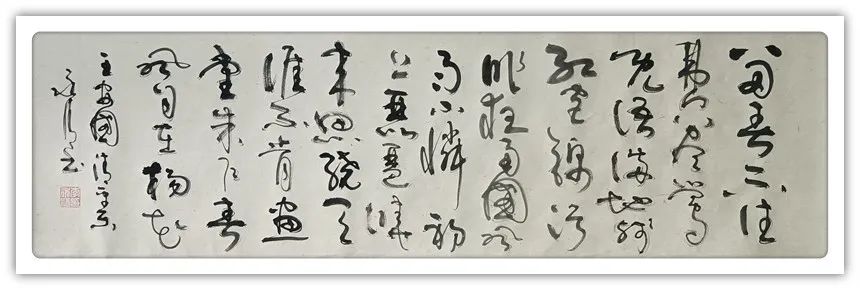 留春不住
费尽莺
兒语满地残
红宫锦污
昨夜南園风
雨小憐初
上琵琶曉
来思绕天
涯不肯画
堂朱户春
风自在楊花
王安國清平乐